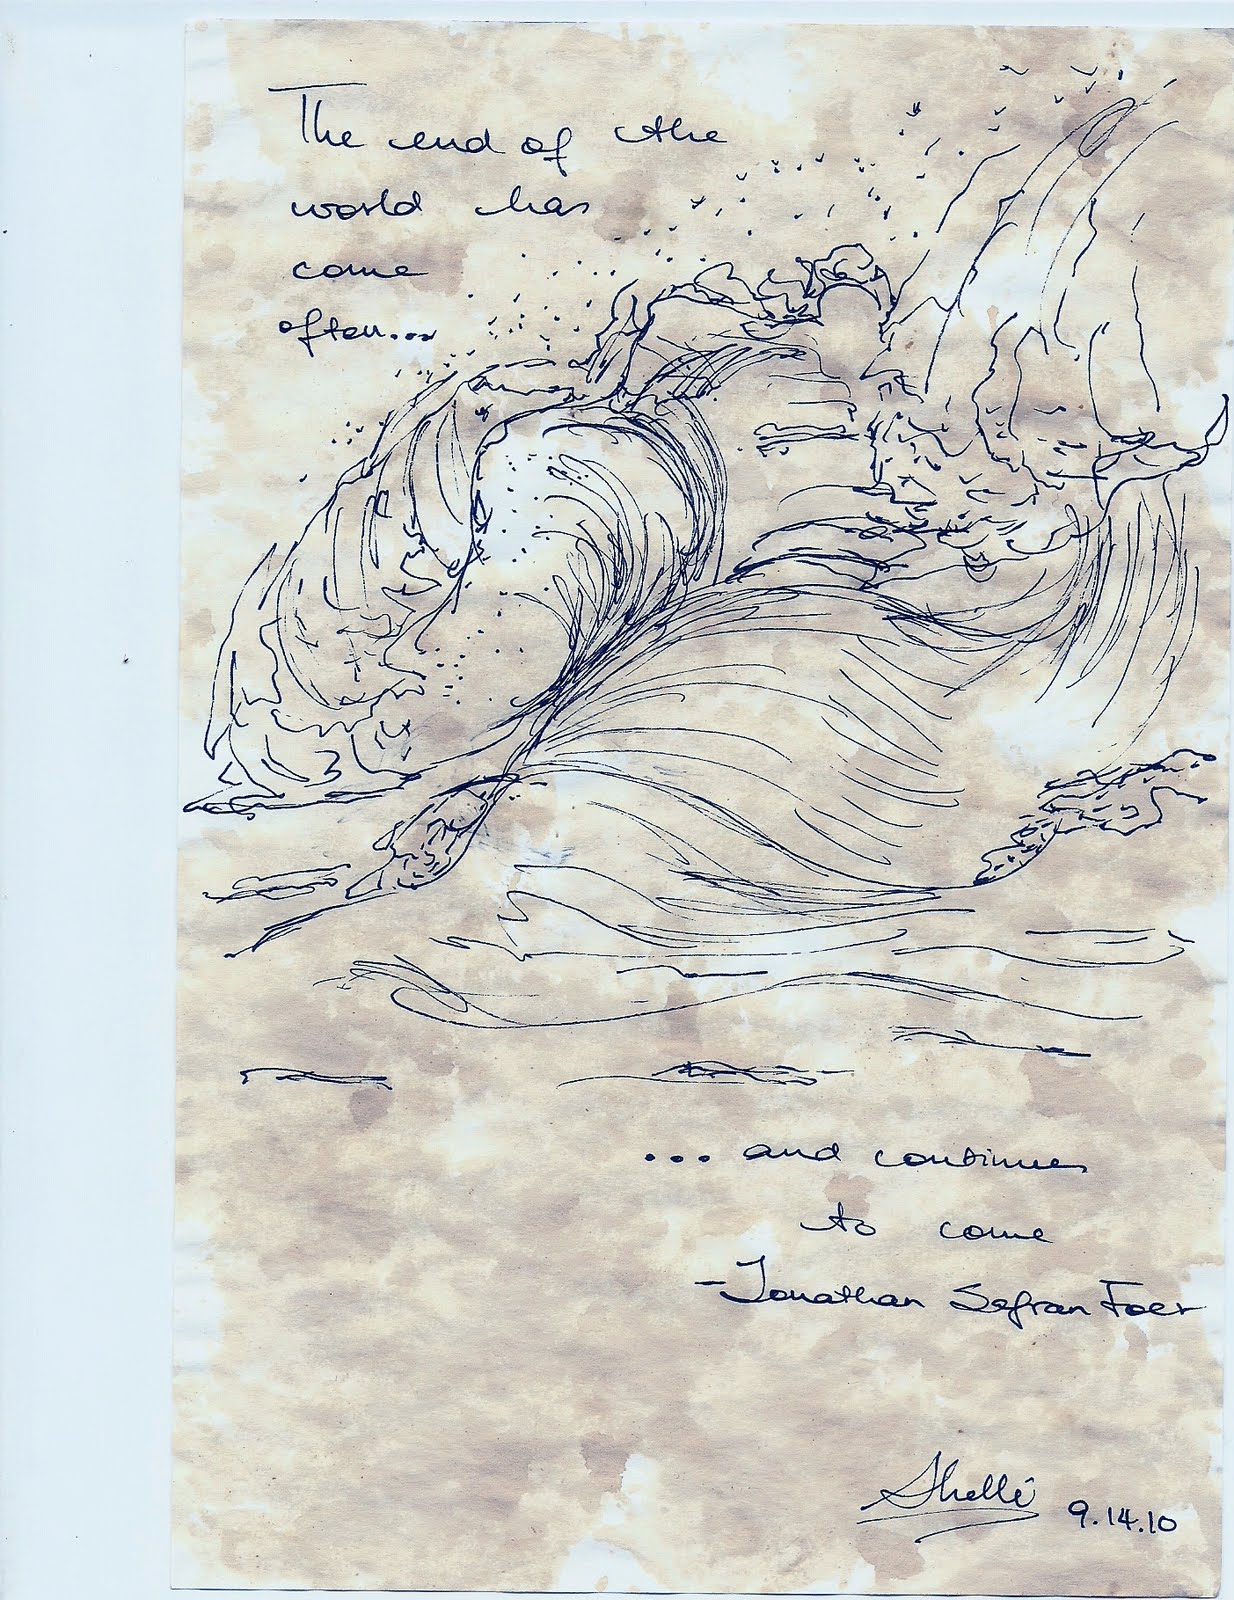 The end of the
world has
come
often...
... and continues
to come
-Jonathan Safran Foer
Shelli
9.14.10